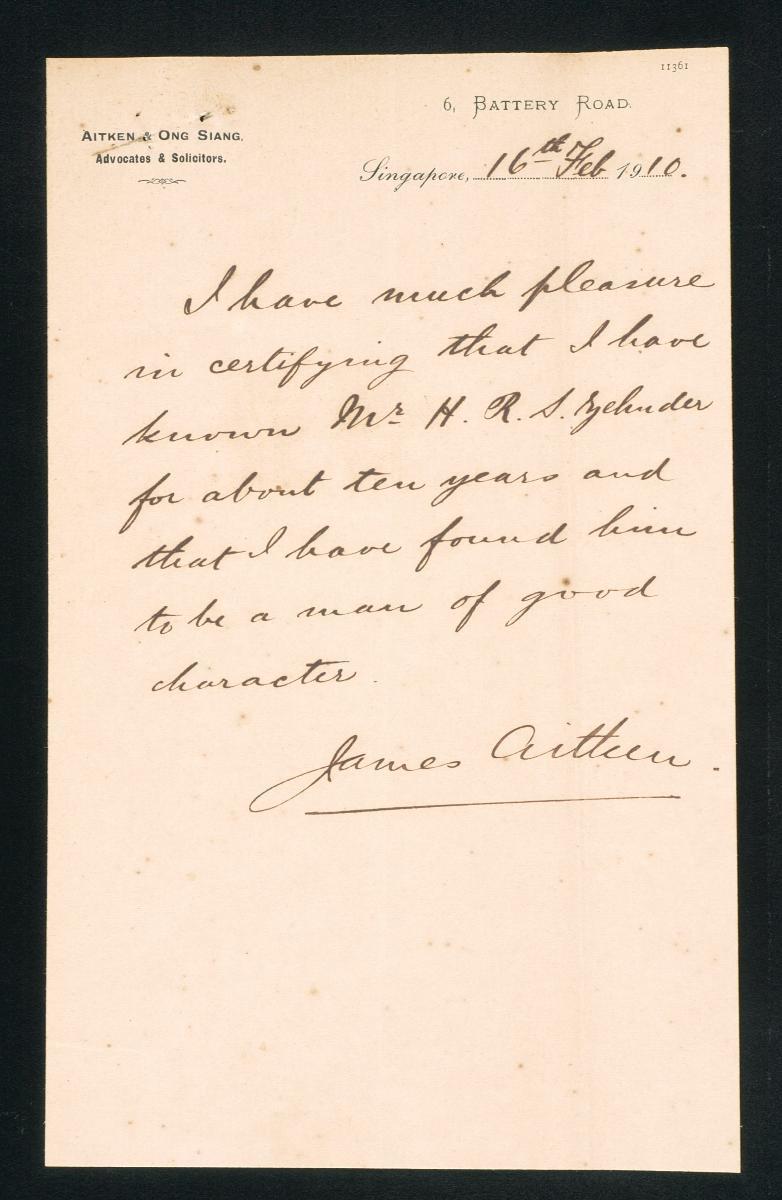 11361
6, BATTERY ROAD.
AITKEN & ONG SIANG,
Advocates & Solicitors.
Singapore, 16th Feb 1910.
I have much pleasure
in certifying that I have
known Mr H. R. S. Zehnder
for about ten years and
that I have found him
to be a man of good
character.
James Aitken.